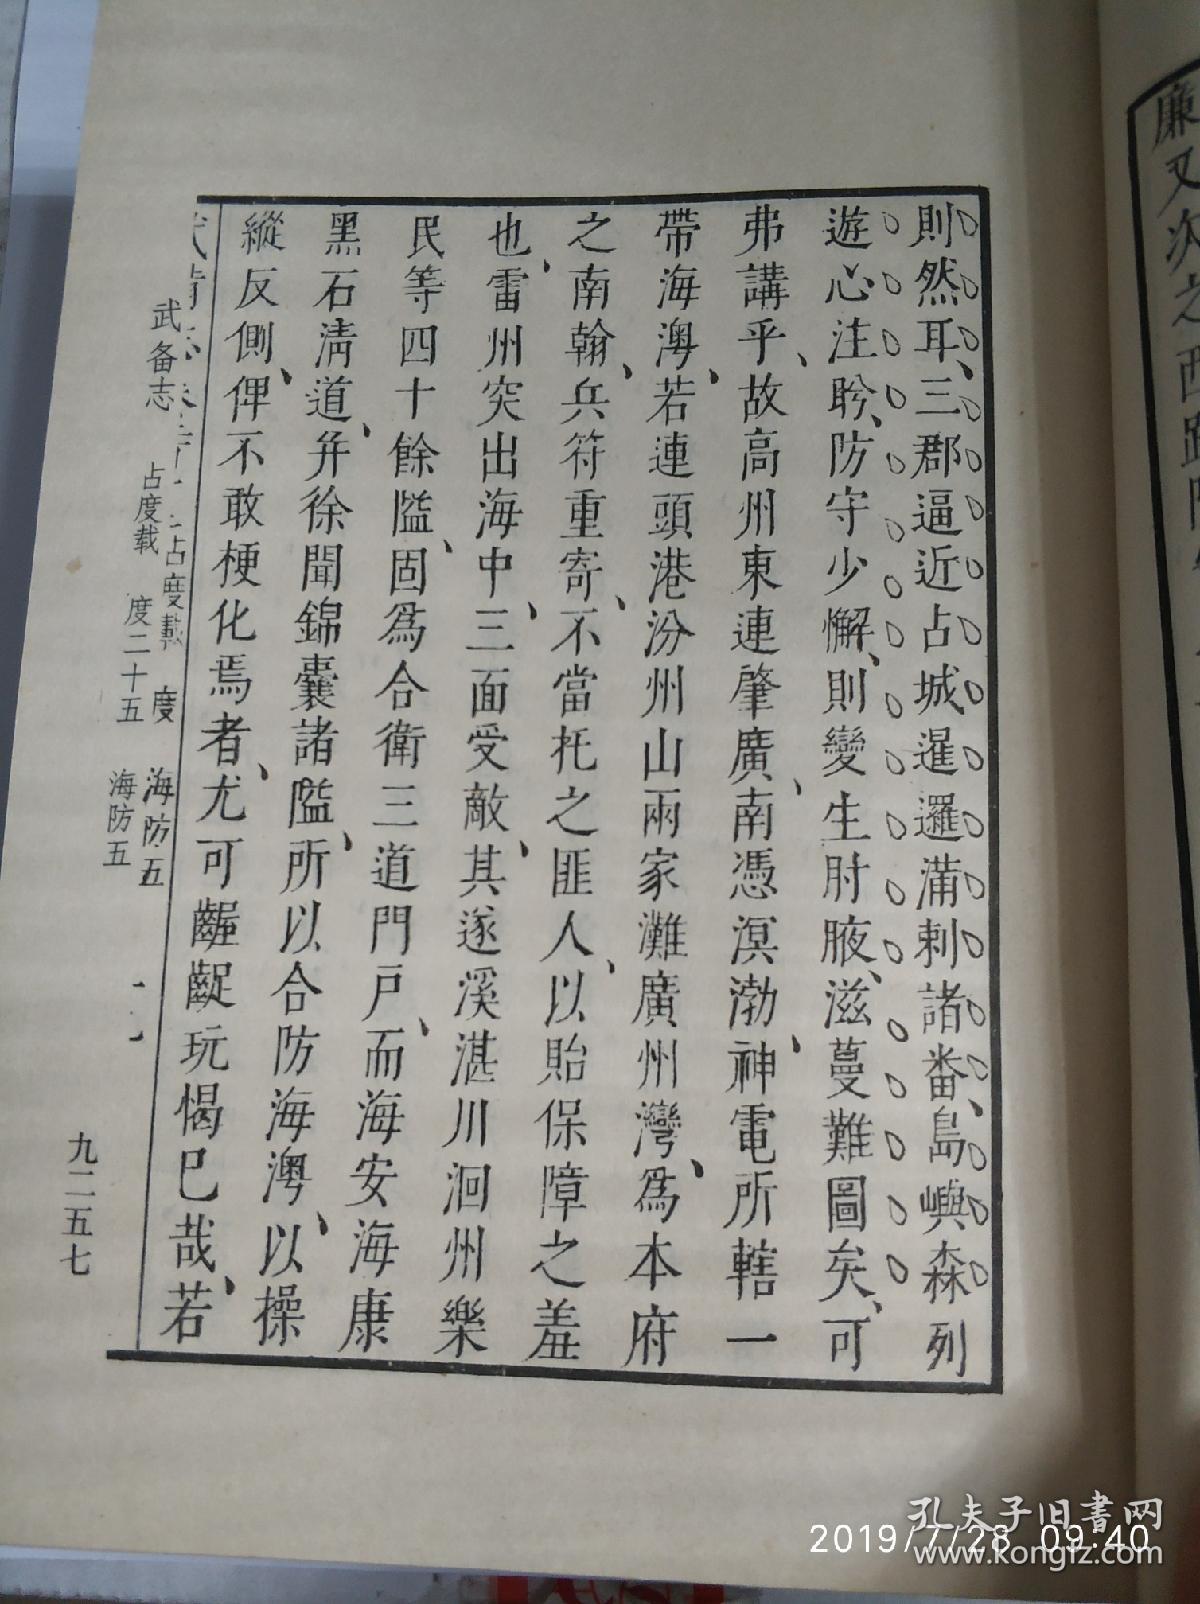 廉又次之西路防
則然耳三郡逼近占城暹邏蒲剌諸番島嶼森列
遊心注盻防守少懈則變生肘腋滋蔓難圖矣可
弗講乎故高州東連肇廣南憑溟渤神電所轄一
帶海澳若連頭港汾州山兩家灘廣州灣爲本府
之南翰兵符重寄不當托之匪人以貽保障之羞
也雷州突出海中三面受敵其遂溪湛川洄州樂
民等四十餘隘固爲合衛三道門戸而海安海康
黑石淸道并徐聞錦囊諸隘所以合防海澳以操
縱反側俾不敢梗化焉者尤可齷齪玩愒巳哉若
占度載 度 海防五
武备志 占度载 度二十五 海防五
九二五七
孔夫子旧书网
www.kongfz.com
2019/7/28 09:40